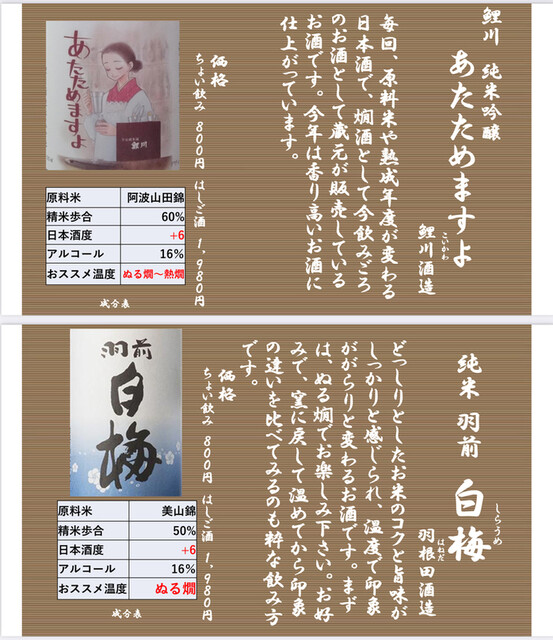 鯉川 純米吟醸
あたためますよ
こいかわ
鯉川酒造
毎回、原料米や熟成年度が変わる
日本酒で、燗酒として今飲みごろ
のお酒として蔵元が販売している
お酒です。今年は香り高いお酒に
仕上がっています。
価格
ちょい飲み 800円 はしご酒 1,980円
あたためますよ
鯉川
原料米 阿波山田錦
精米歩合 60%
日本酒度 +6
アルコール 16%
おススメ温度 ぬる燗～熱燗
成分表
純米 羽前 白梅
しらうめ
はねだ
羽根田酒造
どっしりとしたお米のコクと旨味が
しっかりと感じられ、温度で印象
ががらりと変わるお酒です。まず
は、ぬる燗でお楽しみ下さい。お好
みで、窯に戻して温めてから印象
の違いを比べてみるのも粋な飲み方
です。
価格
ちょい飲み 800円 はしご酒 1,980円
羽前
白梅
原料米 美山錦
精米歩合 50%
日本酒度 +6
アルコール 16%
おススメ温度 ぬる燗
成分表